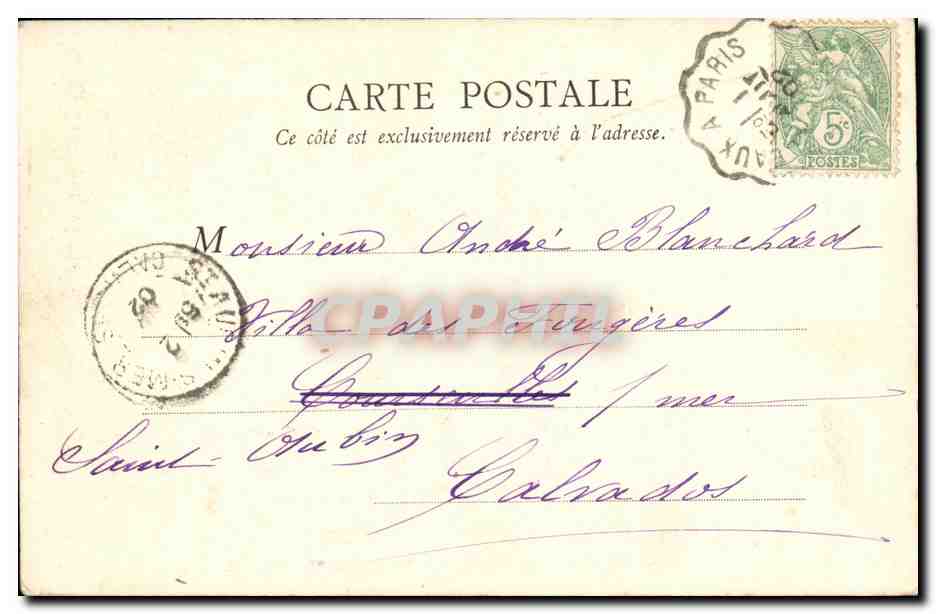 CARTE POSTALE
Ce côté est exclusivement réservé à l'adresse.
A PARIS
5c
POSTES
Monsieur André Blanchard
Villa des Fougères
Courseulles / mer
Saint-Aubin
Calvados
CPAPHIL
ST AU
S-MER
02